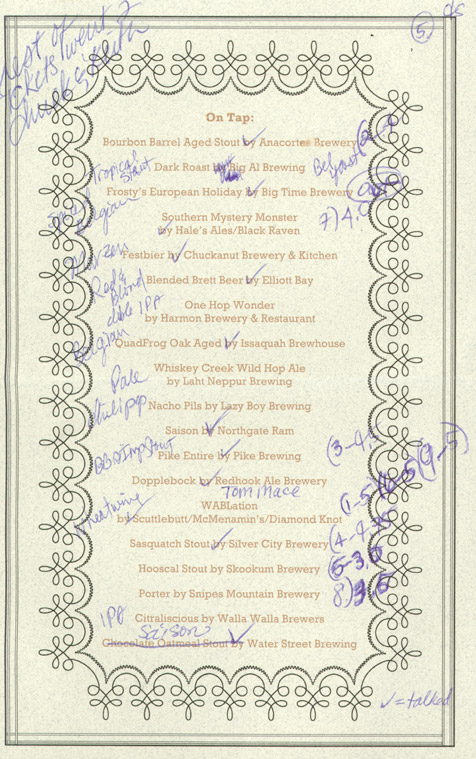 5.
On Tap:
Bourbon Barrel Aged Stout by Anacortes Brewery
Tropical Stout
Dark Roast by Big Al Brewing
Frosty's European Holiday by Big Time Brewery
Belgian
Southern Mystery Monster
by Hale's Ales/Black Raven
7) 4.
Marzen
Festbier by Chuckanut Brewery & Kitchen
Blended Brett Beer by Elliott Bay
Red & Blond
dble IPA
One Hop Wonder
by Harmon Brewery & Restaurant
Belgian
QuadFrog Oak Aged by Issaquah Brewhouse
Whiskey Creek Wild Hop Ale
by Laht Neppur Brewing
Pale
Nacho Pils by Lazy Boy Brewing
Saison by Northgate Ram
Pike Entire by Pike Brewing
Dopplebock by Redhook Ale Brewery
Tom Mace
WABLation
by Scuttlebutt/McMenamin's/Diamond Knot
Sasquatch Stout by Silver City Brewery
Hooscal Stout by Skookum Brewery
Porter by Snipes Mountain Brewery
8) 3.5
IPA
Citraliscious by Walla Walla Brewers
Saison
Chocolate Oatmeal Stout by Water Street Brewing
✓ = talked